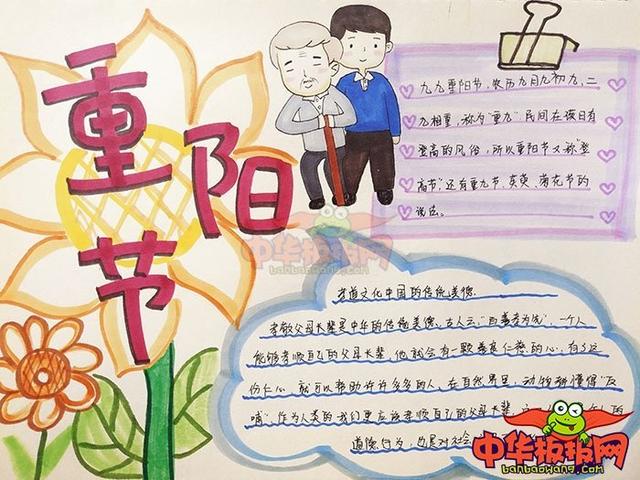 重阳节
九九重阳节，农历九月九初九，二
九相重，称为"重九"民间在该日有
登高的风俗，所以重阳节又称"登
高节"还有重九节、茱萸、菊花节的
说法。
中华板报网
banbaowang.com
孝道文化中国的传统美德
孝敬父母长辈是中华的传统美德，古人云："百善孝为先"，一个人
能够孝顺自己的父母长辈，他就会有一颗善良仁德的心，有了这
份仁心，就可以帮助许许多多的人，在自然界里，动物都懂得"反
哺"，作为人类的我们更应该孝顺自己的父母长辈
道德行为，也是对社会
中华板报网
banbaowang.com